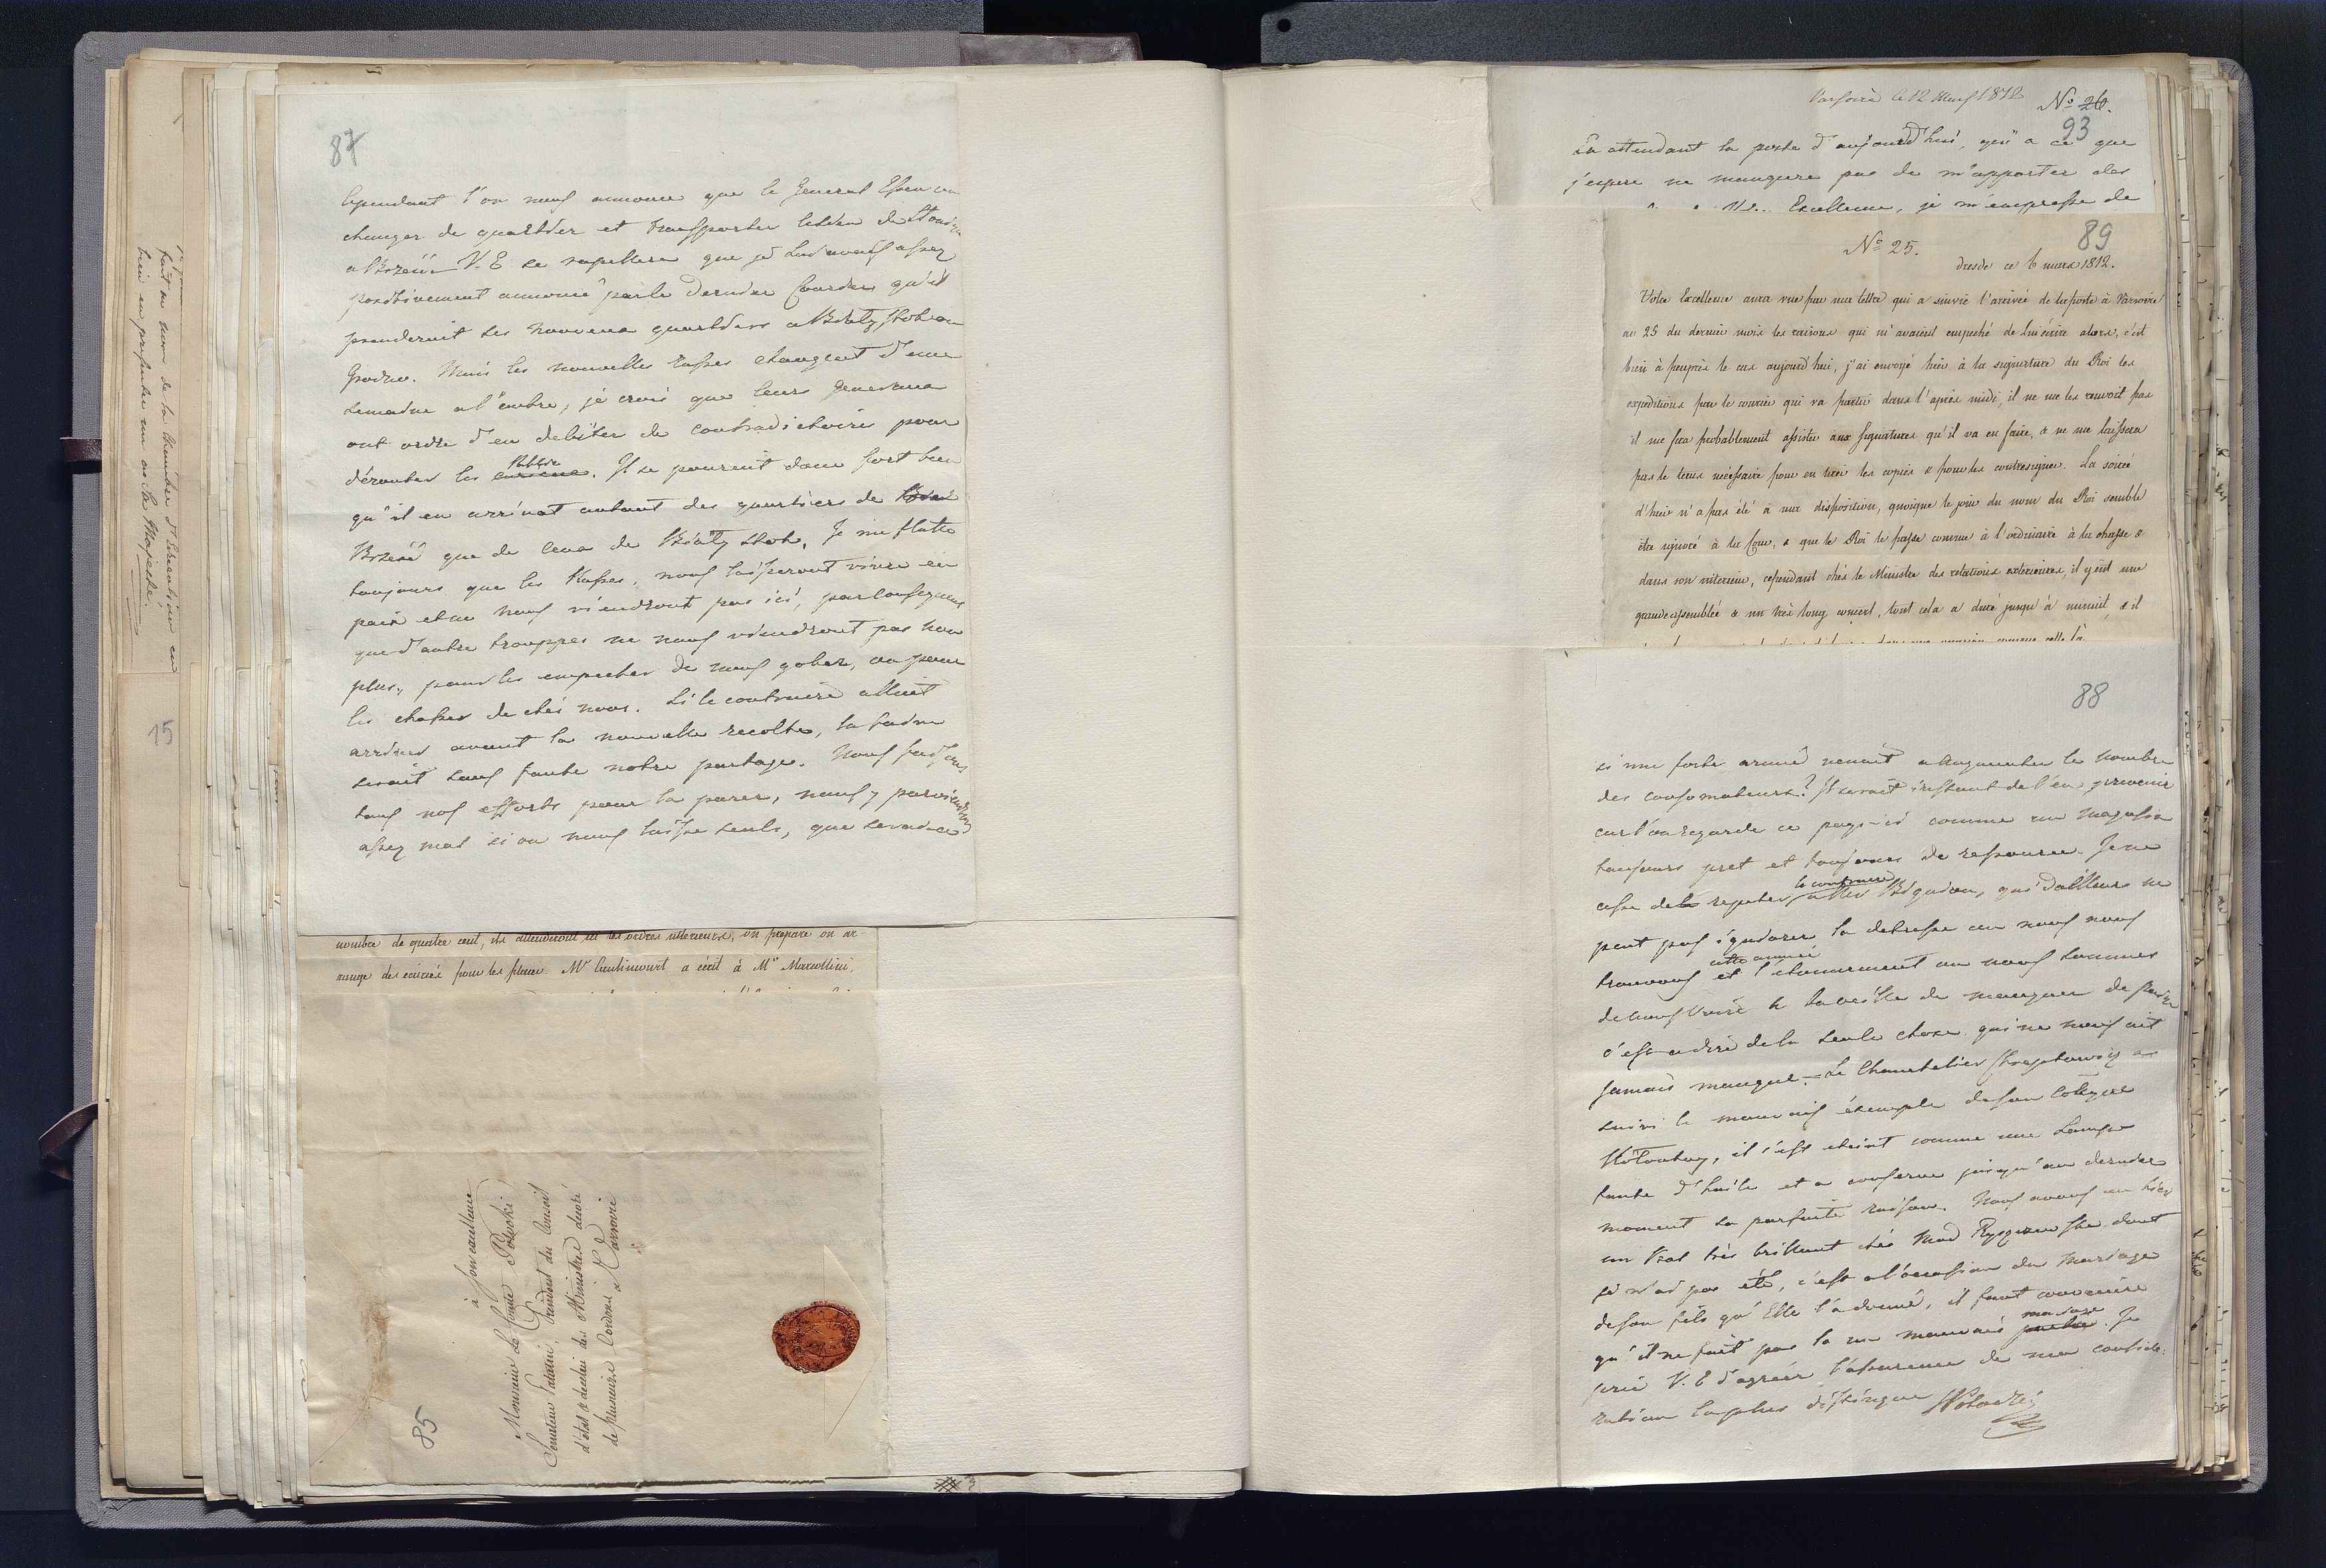 87
Cependant l'on nous annonce que le General Essen va
changer de quartier et transporter celui de
a Brzesc V. E se rapellera que je lui avois assez
positivement annoncé par le dernier Courier qu'il
prenderoit ses nouveaux quartiers a Bialystok ou
Grodno. Mais les nouvelles russes changent d'une
semaine a l'autre, je crois que leurs Generaux
ont ordre d'en debiter de contradictoires pour
dérouter les curieux. Il se pouroit donc fort bien
qu'il en arrivat autant des quartiers de
Brzesc que de ceux de Bialystok. Je me flatte
toujours que les Russes, nous laisseront vivre en
paix et ne nous viendront pas ici, par consequent
que d'autre trouppes ne nous viendront pas non
plus, pour les empecher de nous gober, ou pour
les chasser de chés nous. Si le contraire alloit
arriver avant la nouvelle recolte, la famine
seroit sans faute notre partage. Nous faisons
tous nos efforts pour la parer, nous y parviendrons
assez mal si on nous laisse seuls, que sera-ce
nombre de quatre cent, ils attenderont ici les ordres ulterieurs, on prepare on ar-
range des ecuries pour les placer. Mr Caulincourt a écrit à Mr Marcollini,
à Son excellence
Monsieur Le Comte Potocki
Senateur Palatin, President du Conseil
d'état & de celui des Ministres décoré
de plusieurs Cordons à Varsovie
85
15
fait au nom de la Chambre d'Education en
bien en presenter un au Sa Majesté.
Varsovie le 12 Mars 1812 No 26.
93
En attendant la poste d'aujourd'hui, qui a ce que
j'espere ne manquera pas de m'apporter des
Excellence, je m'empresse de
89
No 25.
dresde ce 6 mars 1812.
Votre Excellence aura vue par ma lettre qui a suivie l'arivée de la poste à Varsovie
au 25 du dernier mois les raisons qui m'avoient empeché de lui écrire alors, c'est
bien à peuprès le cas aujourd'hui, j'ai envoyé hier à la signature du Roi les
expeditions par le courier qui va partir dans l'après midi, il ne me les renvoit pas
il me fera probablement assister aux signatures qu'il va en faire, & ne me laissera
pas le tems nécessaire pour en tirer les copies & pour les contresigner. La soirée
d'hier n'a pas été à ma disposition, quoique le jour du nom du Roi semble
être ignoré à la Cour, & que le Roi le passe comme à l'ordinaire à la chasse &
dans son interieur, cependant chés le Ministre des relations exterieures, il y eut une
grande assemblée & un très long concert, tout cela a duré jusqu'à minuit, & il
88
si une forte armée venoit augmenter le nombre
des consomateurs? Il seroit instant de l'en prevenir
car l'on regarde ce pays-ci comme un magasin
toujours pret et toujours de ressource. Je ne
cesse de repeter le contraire a Mr Bignon, qui d'ailleurs ne
peut pas ignorer la detresse ou nous nous
trouvons cette année et l'etonnement ou nous sommes
de nous voire a la veille de manquer de pain
c'est a dire de la seule chose qui ne nous ait
jamais manqué. - Le Chambelan a
suivi le mauvais exemple de son Collegue
il s'est eteint comme une Lampe
faute d'huile et a conservé jusqu'au dernier
moment sa parfaite raison. Nous avons eu hier
un Bal très brillant chés Mad dont
je n'ai pas été, c'est a l'occasion du mariage
de son fils qu'Elle l'a donné, il faut convenire
qu'il ne fait pas la un mauvais mariage. Je
prie V. E d'agréer l'assurance de ma conside-
ration la plus distinguée SPotocki